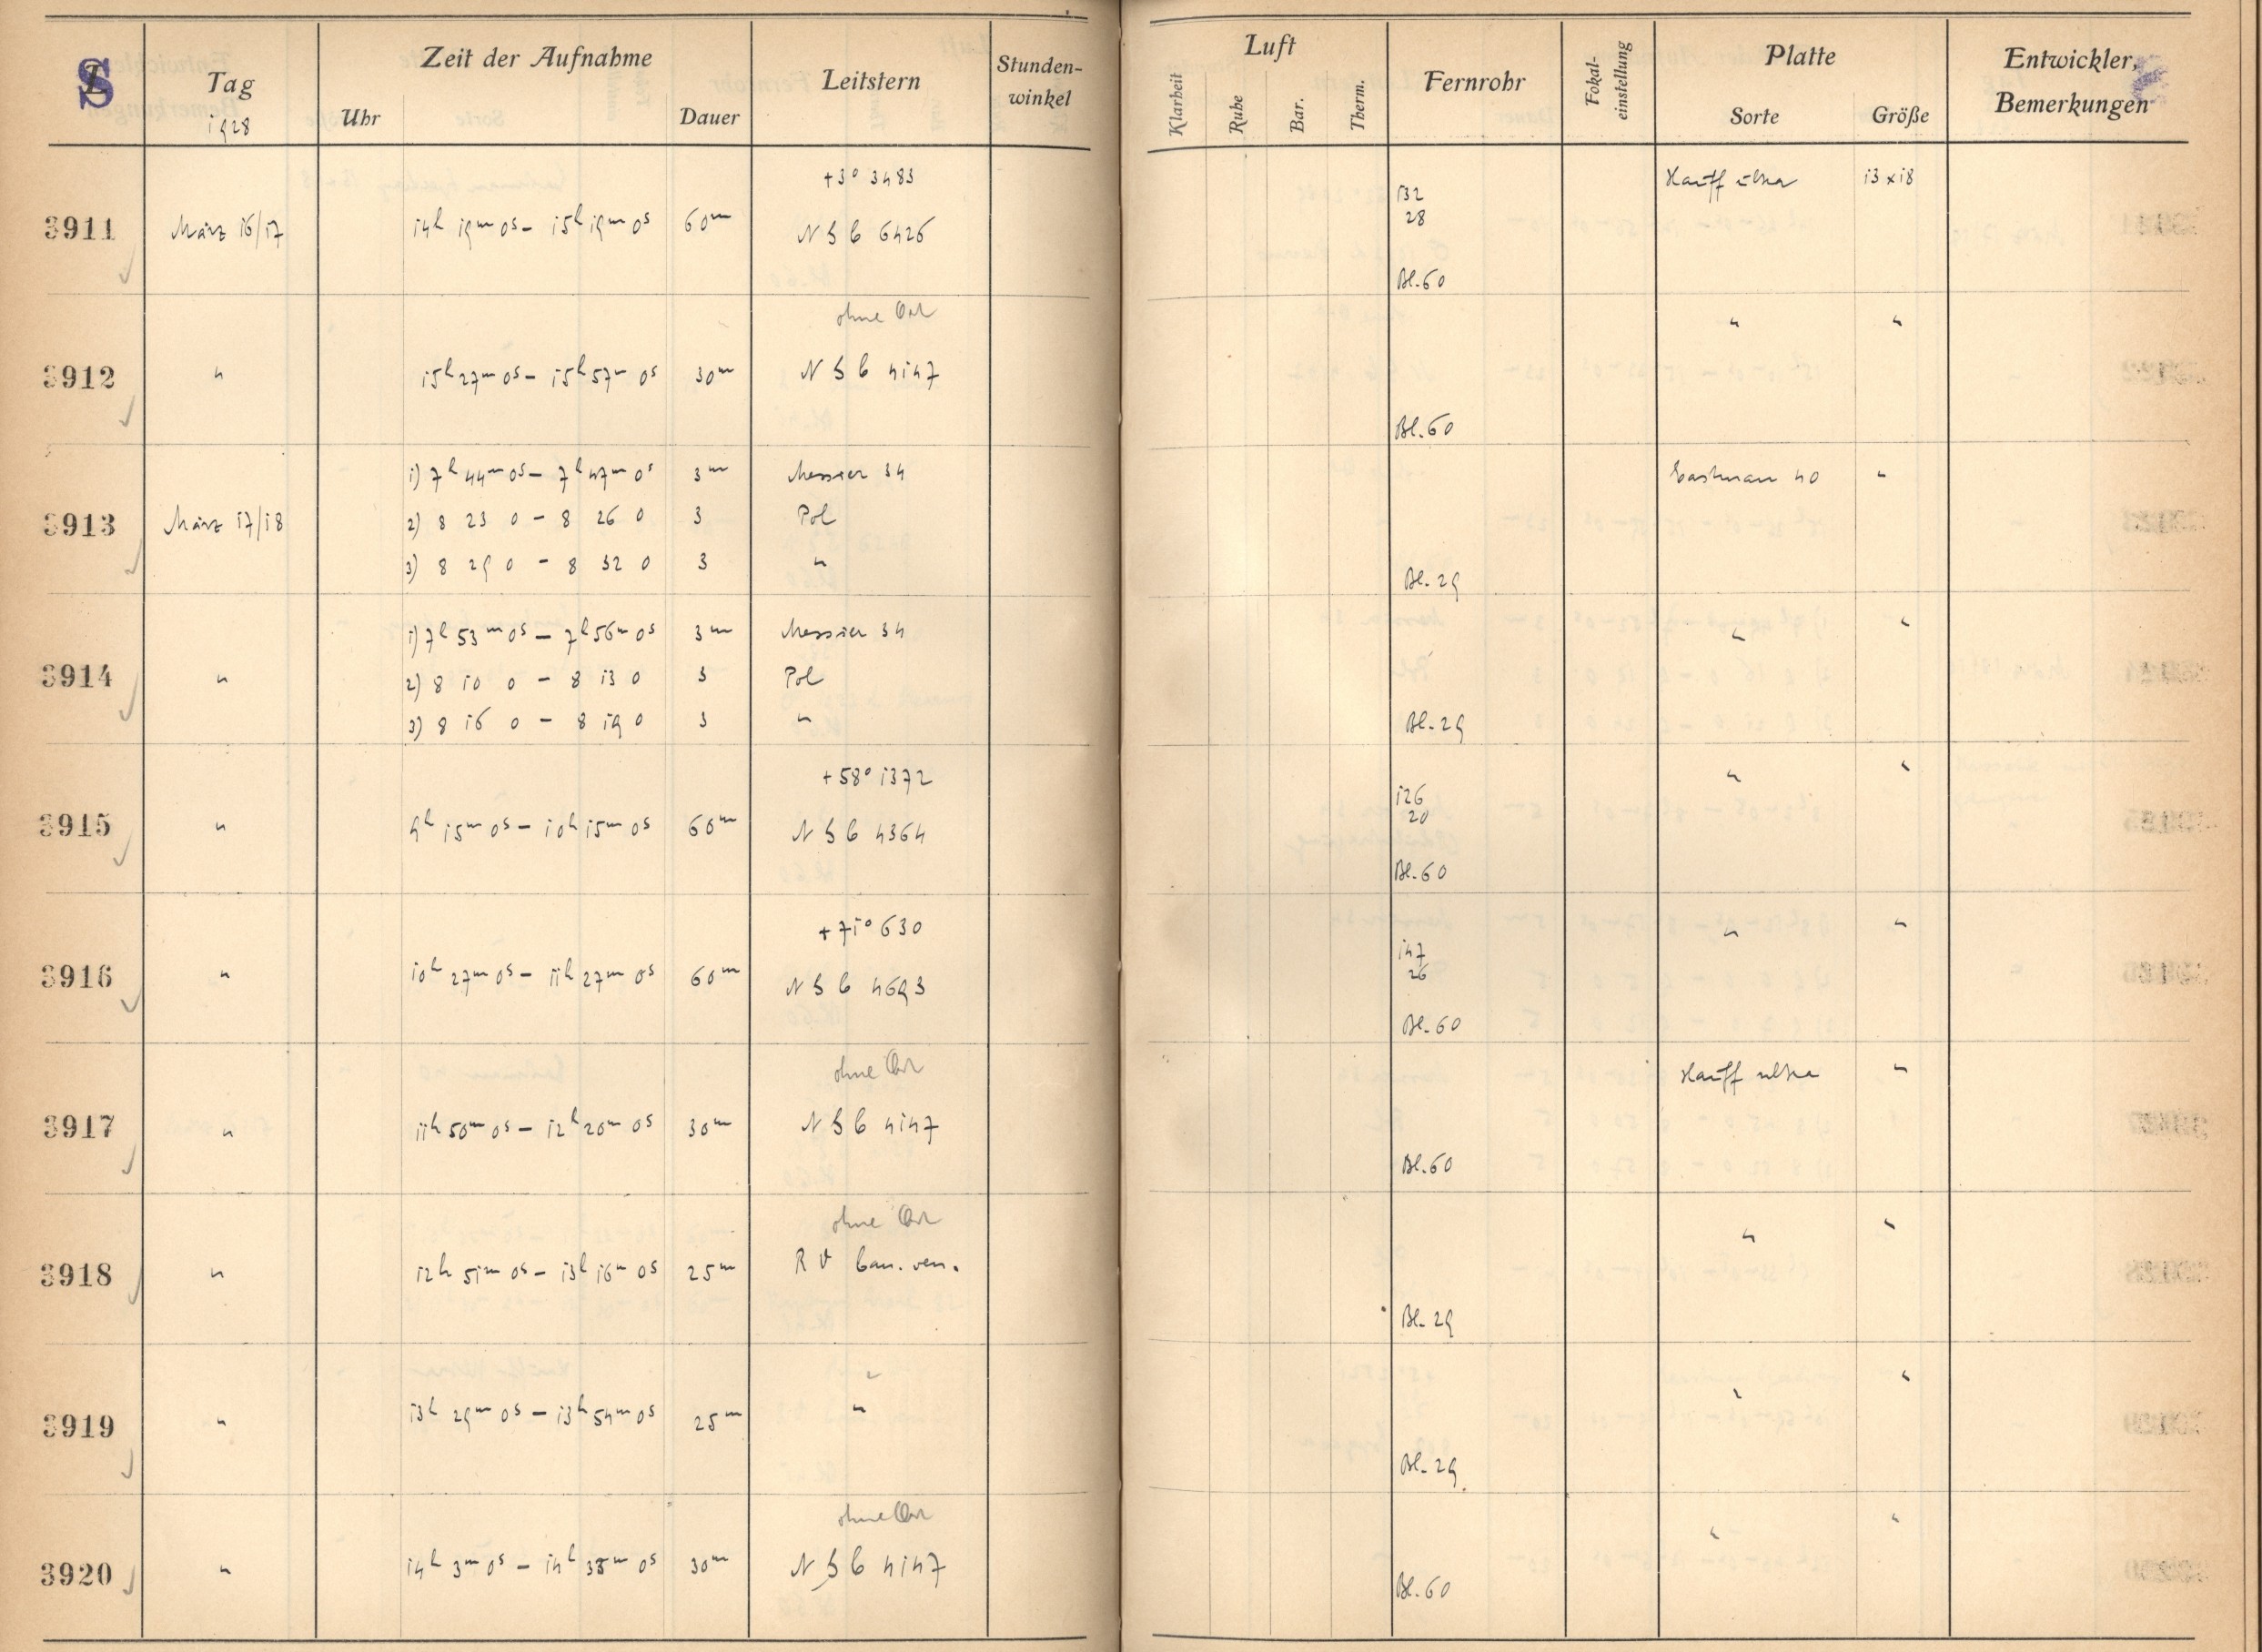 S
Tag
1928
Zeit der Aufnahme
Uhr
Dauer
Leitstern
Stunden-
winkel
Luft
Klarheit
Ruhe
Bar.
Therm.
Fernrohr
Fokal-
einstellung
Platte
Sorte
Größe
Entwickler,
Bemerkungen
+3° 3483
132
Hauff ultra 13 x 18
28
3911 März 16/17 14h 19m 0s – 15h 19m 0s 60m N G C 6426
Bl. 60
ohne Ort
" "
3912 " 15h 27m 0s – 15h 57m 0s 30m N G C 4147
Bl. 60
1) 7h 44m 0s – 7h 47m 0s 3m Messier 34 Eastman 40 "
3913 März 17/18 2) 8 23 0 – 8 26 0 3 Pol
3) 8 29 0 – 8 32 0 3 "
Bl. 29
1) 7h 53m 0s – 7h 56m 0s 3m Messier 34 " "
3914 " 2) 8 10 0 – 8 13 0 3 Pol
3) 8 16 0 – 8 19 0 3 " Bl. 29
+58° 1372 " "
126
20
3915 " 9h 15m 0s – 10h 15m 0s 60m N G C 4364
Bl. 60
+71° 630 " "
147
26
3916 " 10h 27m 0s – 11h 27m 0s 60m N G C 4693
Bl. 60
ohne Ort Hauff ultra "
3917 " 11h 50m 0s – 12h 20m 0s 30m N G C 4147
Bl. 60
ohne Ort " "
3918 " 12h 51m 0s – 13h 16m 0s 25m R V Can. ven.
Bl. 29
" " "
3919 " 13h 29m 0s – 13h 54m 0s 25m "
Bl. 29
ohne Ort " "
3920 " 14h 3m 0s – 14h 33m 0s 30m N G C 4147
Bl. 60